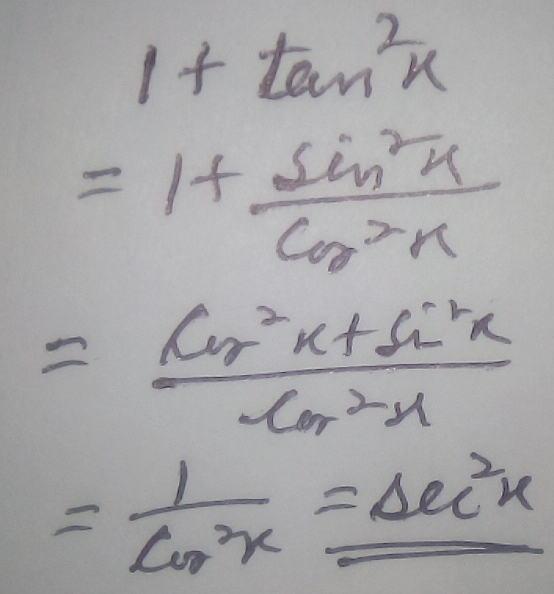 1 + tan²x
= 1 + sin²x / cos²x
= cos²x + sin²x / cos²x
= 1 / cos²x = sec²x